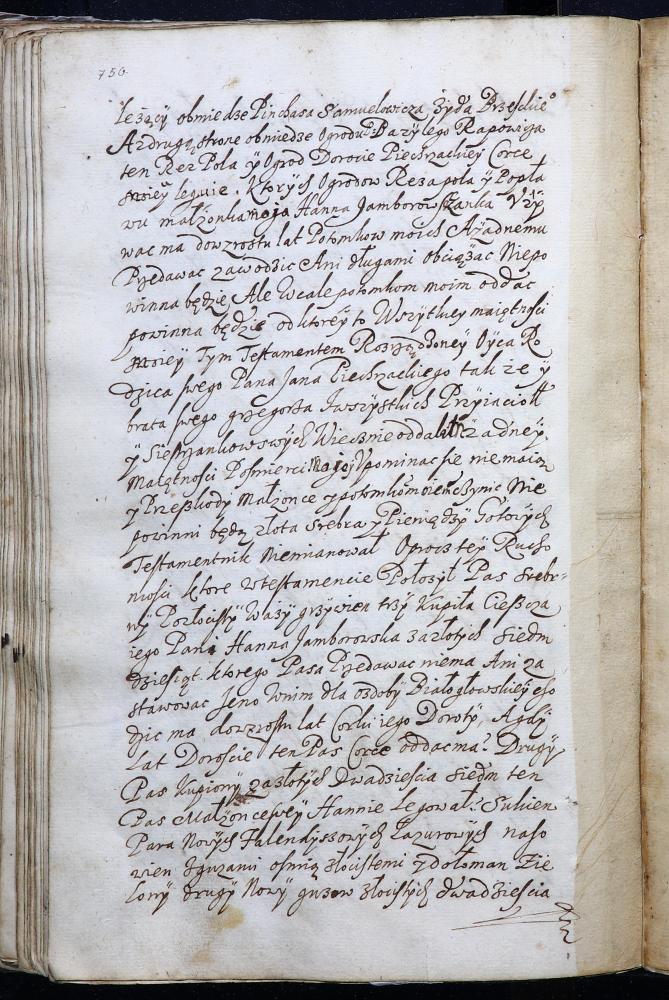 756.
leżący obmiedze Pinchasa Samuelowicza Żyda Brzeskie°
A zdrugą stronę obmiedze Ogrodu Bazylego Rapowiga
ten Rez Pola y Ogrod Dorocie Piechzackiey Corce
moiey leguie. Ktorych Ogrodow Reza pola y Popła
wu małzonka moja Hanna Jamborowszanka Uży
wac ma dowzrostu lat Potomkow moich Ażadnemu
Przedawac zawodzic Ani długami obciążac Niepo
winna będzie Ale Wcale potomkom moim oddac
powinna będzie od ktorey to Wszytkiey maiętnosci
moiey Tym Testamentem Rozrządzoney Oyca Ro
dzica swego Pana Jana Piechzackiego takze y
brata swego grzegorza Jwszystkich Przyiacioł
y Siestrzankow swych Wiecznie oddalił żadney
Maiętnosci Posmierci Mojey Vpominac się niemaią
y Przeszkody Małzonce y potomkom moiem czynic Nie
powinni będą złota srebra y Pieniędzy Gotowych
Testamentnik Niemianował Oprocz tey Rucho
mosci ktore w testamencie Położył Pas srebr=
ny Pozłocisty Waży grzywien trzy Kupiła Cieszcza
iego Pani Hanna Jamborowska za złotych siedm
dziesiąt. ktorego Pasa Przedawac niema Ani za
stawowac Jeno Wnim dla ozdoby Białogłowskiey cho
dzic ma dowzrostu lat Corki iego Doroty, A gdy
Lat Doroscie ten Pas Corce oddac ma: Drugy
Pas Kupiony za złotych dwadziescia siedm ten
Pas Małzonce swey Hannie legował: Sukien
Para Nowych Falendyszowych Lazurowych
wien zguzami osmią złocistemi y dołoman Zie
lony drugy Nowy guzow złocistych dwadziescia